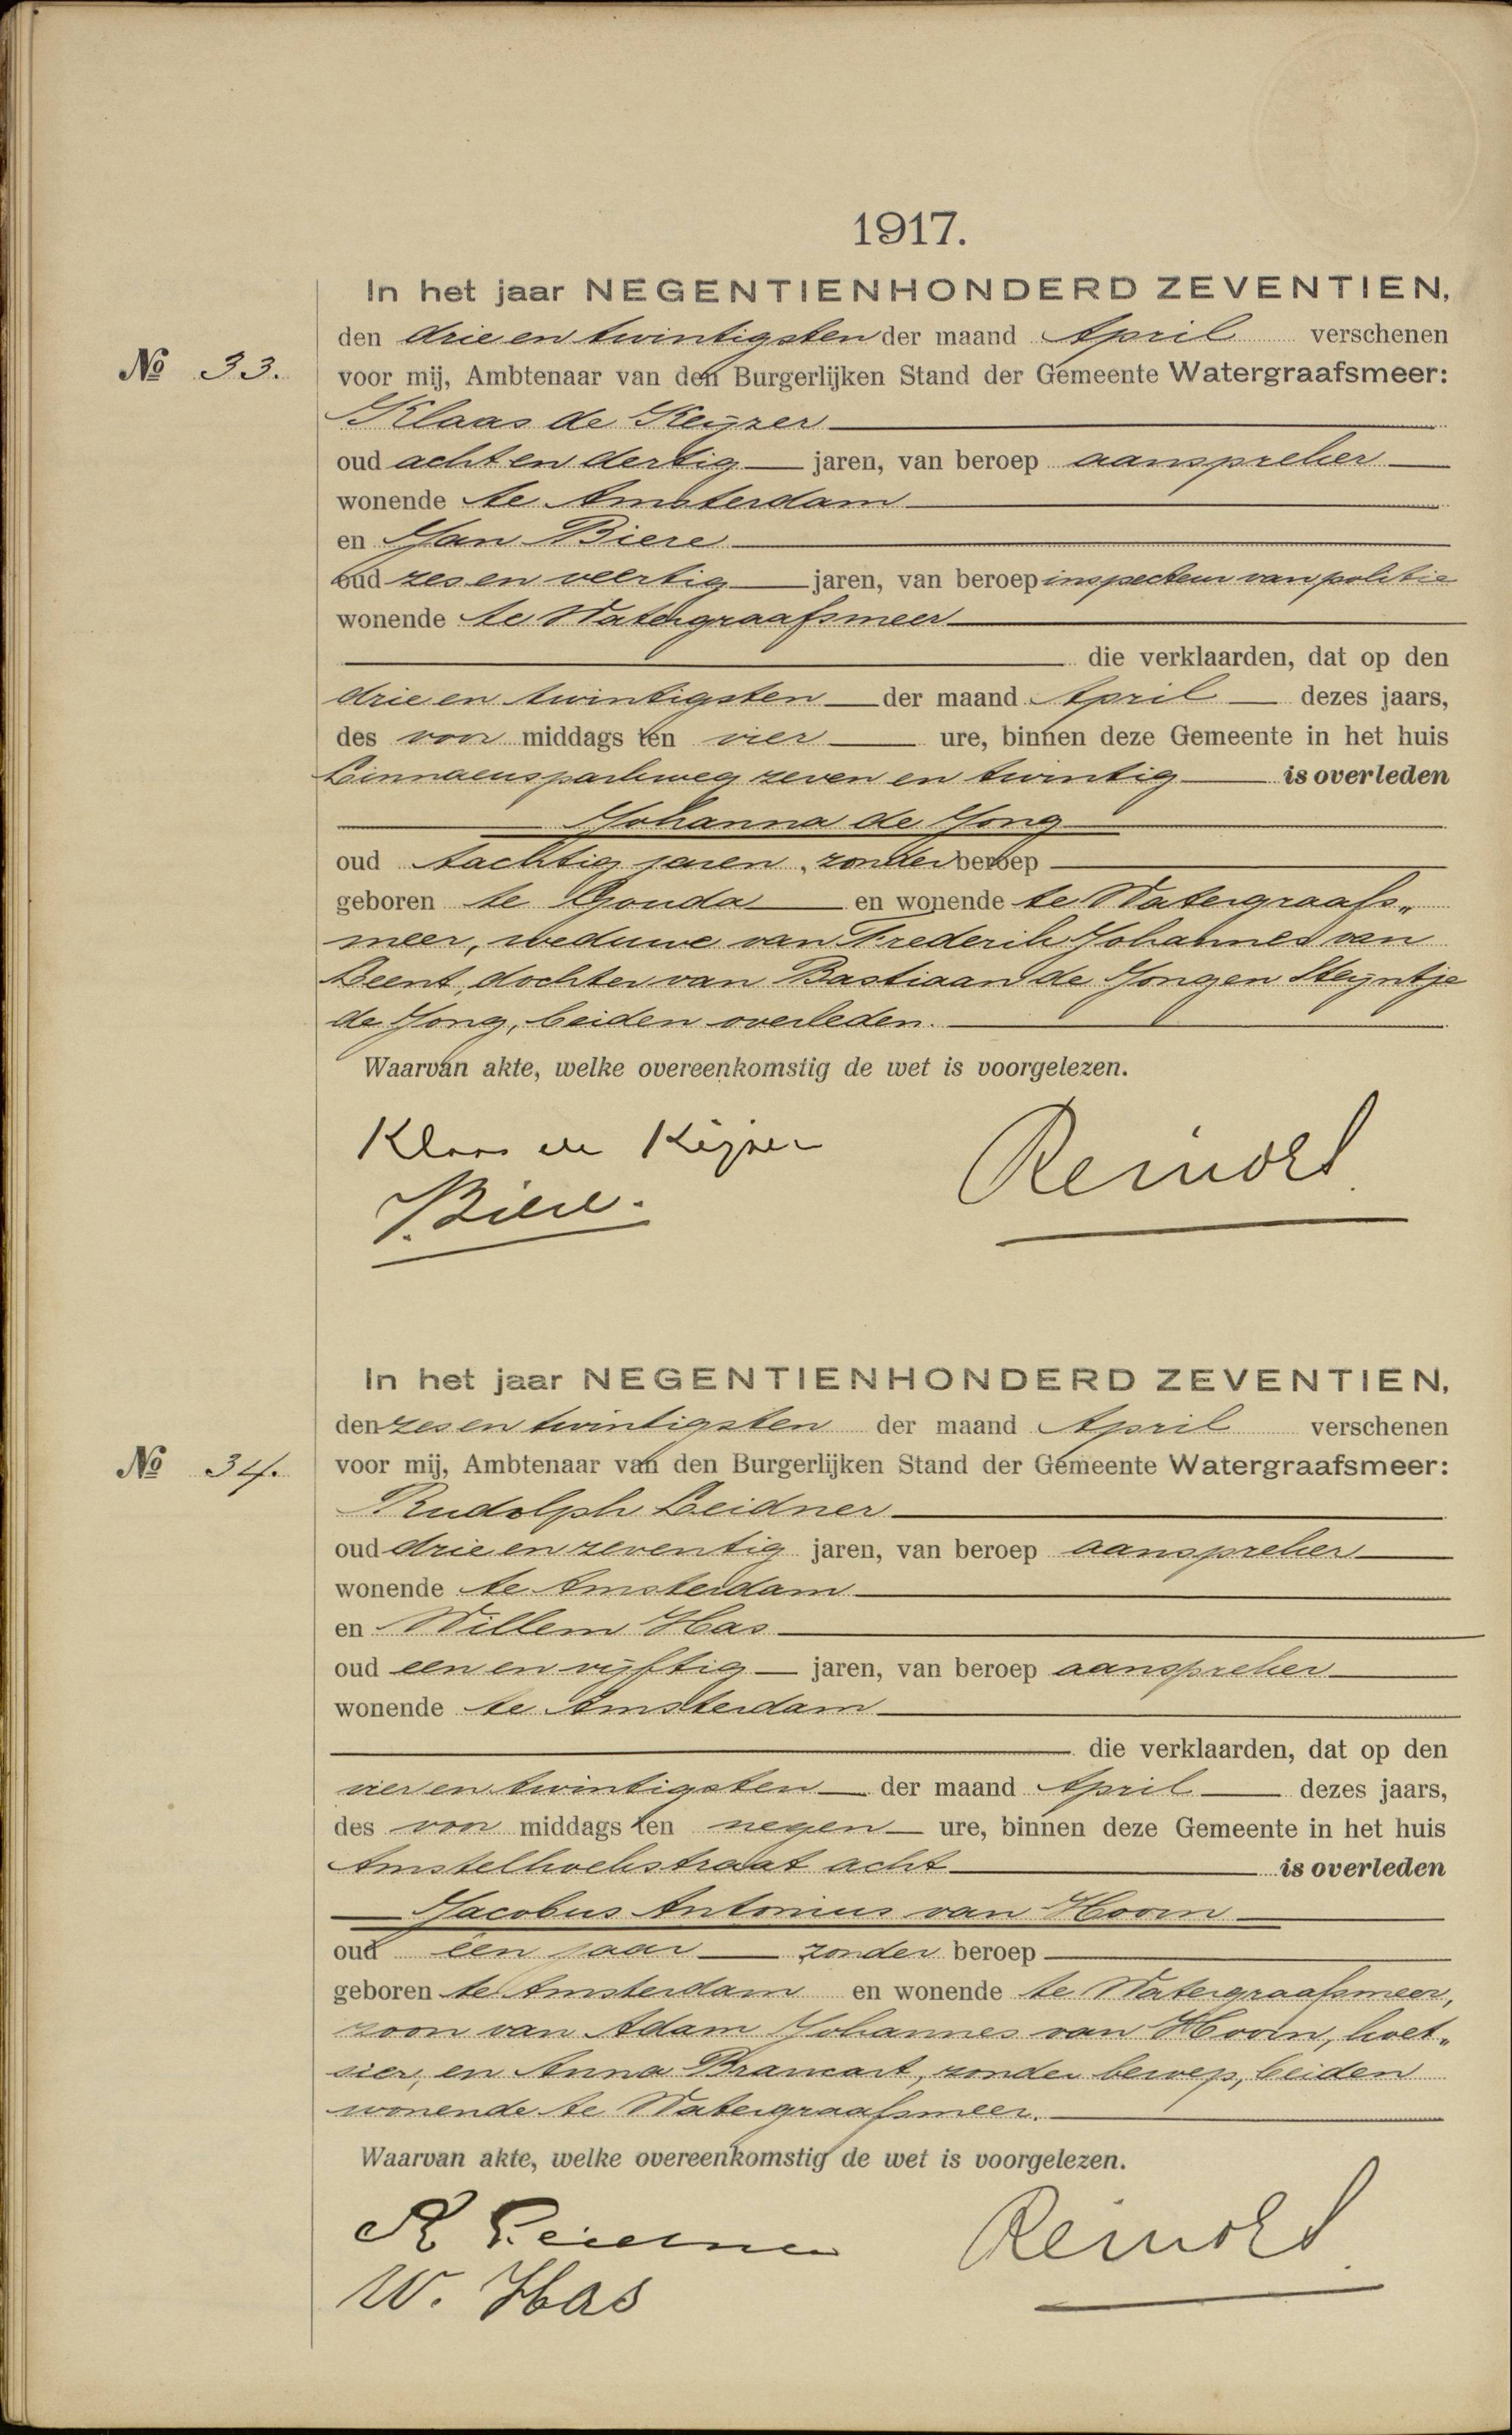 1917.
In het jaar NEGENTIENHONDERD ZEVENTIEN,
den drie en twintigsten der maand April verschenen
No 33.
voor mij, Ambtenaar van den Burgerlijken Stand der Gemeente Watergraafsmeer:
Klaas de Keijzer
oud acht en dertig jaren, van beroep aanspreker
wonende te Amsterdam
en Jan Biere
oud zes en veertig jaren, van beroep inspecteur van politie
wonende te Watergraafsmeer
die verklaarden, dat op den
drie en twintigsten der maand April dezes jaars,
des voor middags ten vier ure, binnen deze Gemeente in het huis
Linnaeusparkweg zeven en twintig is overleden
Johanna de Jong
oud tachtig jaren, zonder beroep
geboren te Gouda en wonende te Watergraafs„
meer, weduwe van Frederik Johannes van
Leent, dochter van Bastiaan de Jong en Steijntje
de Jong, beiden overleden.
Waarvan akte, welke overeenkomstig de wet is voorgelezen.
Klaas de Keijzer
J. Biere.
In het jaar NEGENTIENHONDERD ZEVENTIEN,
den zes en twintigsten der maand April verschenen
No 34.
voor mij, Ambtenaar van den Burgerlijken Stand der Gemeente Watergraafsmeer:
Rudolph Leidner
oud drie en zeventig jaren, van beroep aanspreker
wonende te Amsterdam
en Willem Has
oud een en vijftig jaren, van beroep aanspreker
wonende te Amsterdam
die verklaarden, dat op den
vier en twintigsten der maand April dezes jaars,
des voor middags ten negen ure, binnen deze Gemeente in het huis
Amstelhoekstraat acht is overleden
Jacobus Antonius van Hoorn
oud één jaar zonder beroep
geboren te Amsterdam en wonende te Watergraafsmeer,
zoon van Adam Johannes van Hoorn, koet„
sier, en Anna Brancart, zonder beroep, beiden
wonende te Watergraafsmeer.
Waarvan akte, welke overeenkomstig de wet is voorgelezen.
R Leidner
W. Has